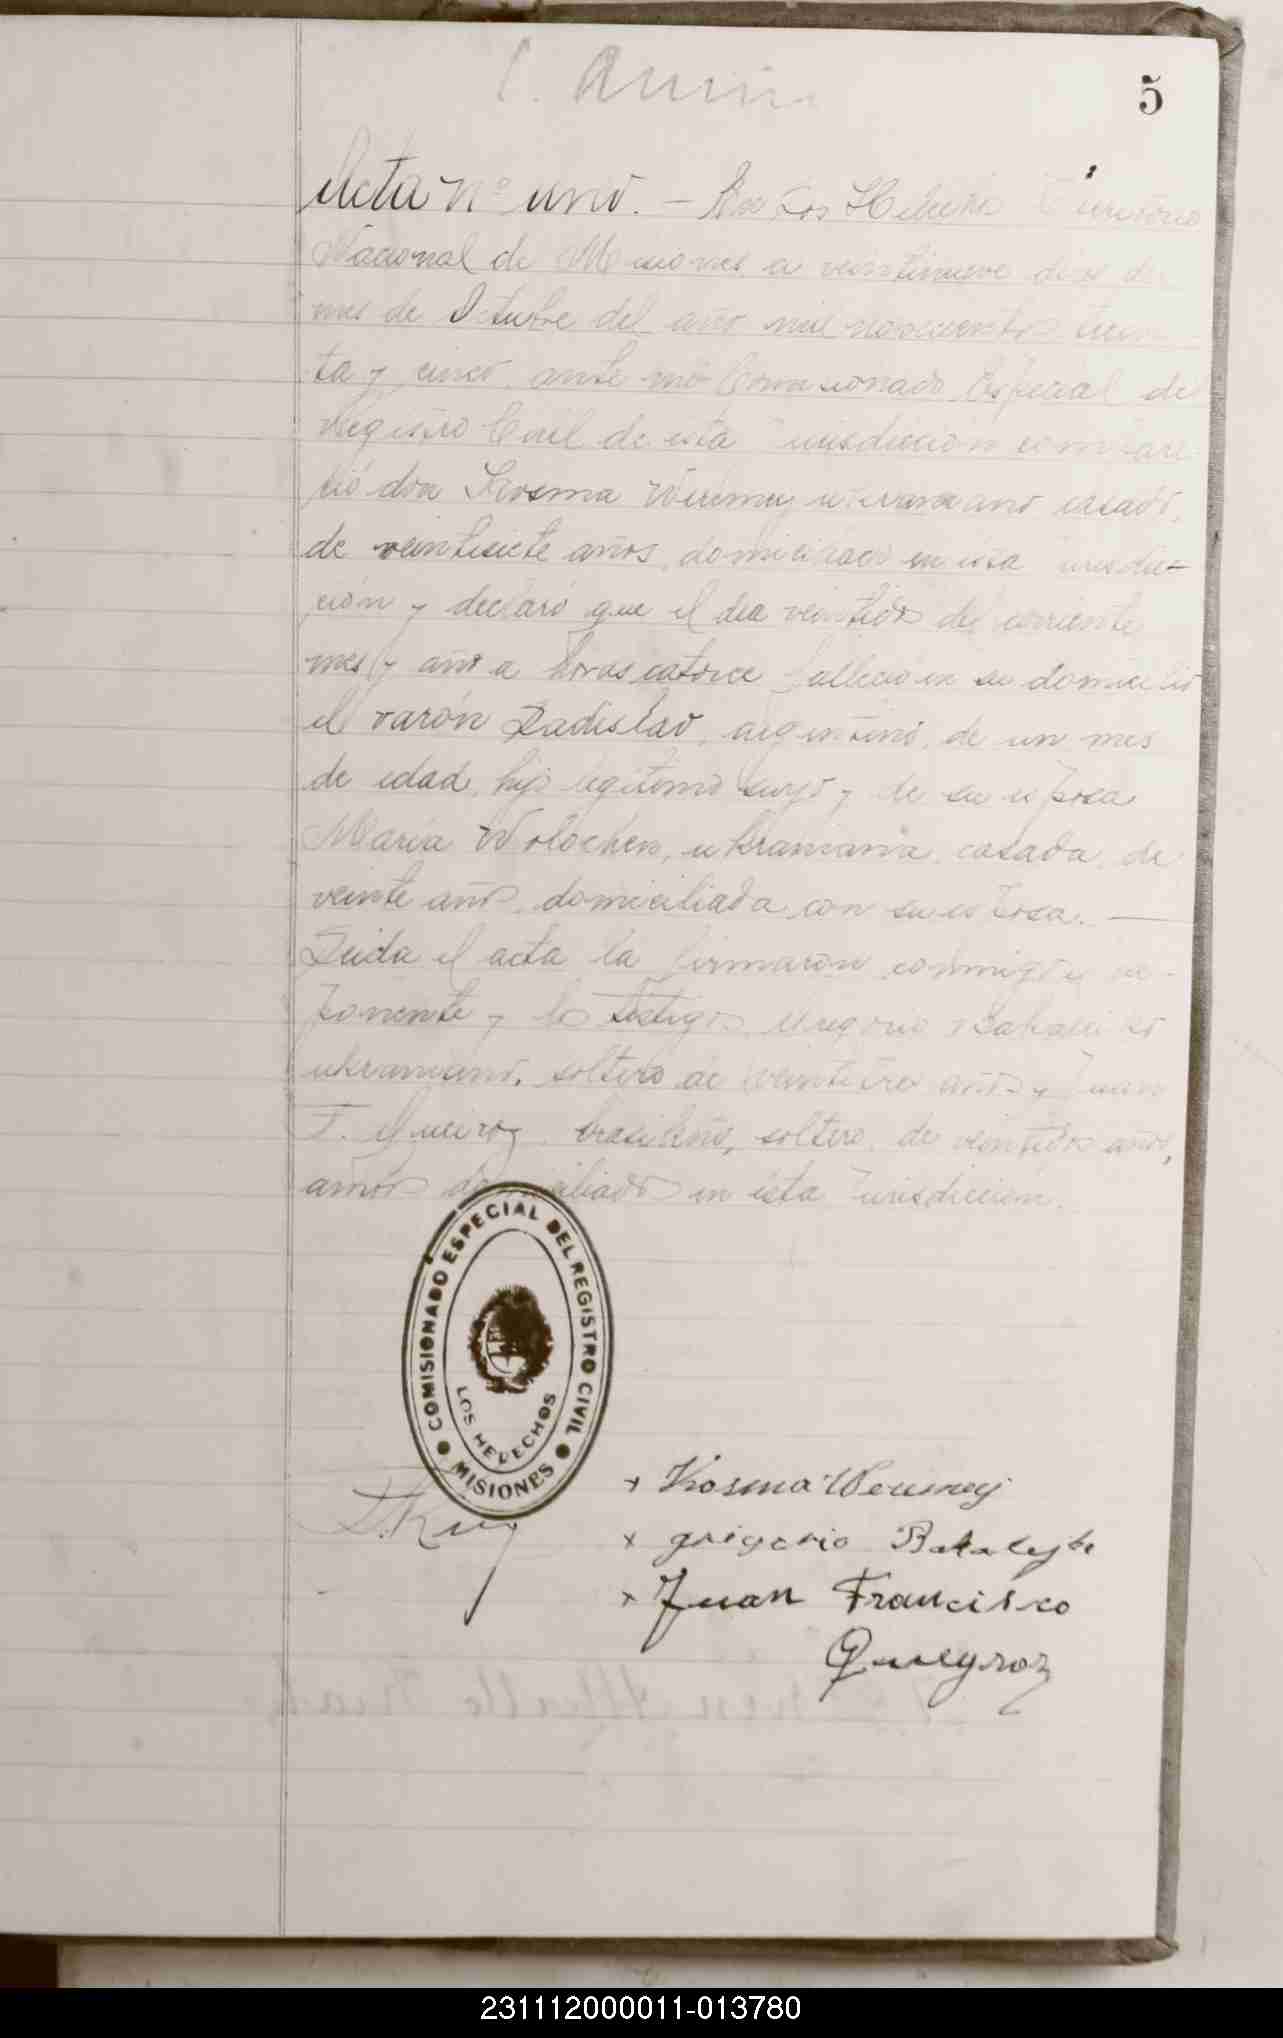 5
Acta nº uno. - En Los Helechos Territorio
Nacional de Misiones, a veintinueve dias del
mes de Octubre del año mil novecientos trein
ta y cinco, ante mi Comisionado Especial del
Registro Civil de esta jurisdicción compare
ció don Kosma Weremey ukraneano casado,
de veintisiete años, domiciliado en esta jurisdic-
ción y declaró que el dia veintidos del corriente
mes y año a horas catorce falleció en su domicilio
el varón Ladislao, argentino, de un mes
de edad, hijo legitimo suyo y de su esposa
Maria Wolochen, ukraniana, casada, de
veinte años, domiciliada con su esposo.
Leida el acta la firmaron conmigo el ex-
ponente y los testigos Gregorio
ukraniano, soltero de veintitres años y Juan
F. Queiroz, brasileño, soltero, de veintidos años,
ambos domiciliados en esta jurisdiccion.
COMISIONADO ESPECIAL DEL REGISTRO CIVIL
LOS HELECHOS
MISIONES
x Kosma Weremey
x grigorio
x Juan Francisco
Queyroz
231112000011-013780